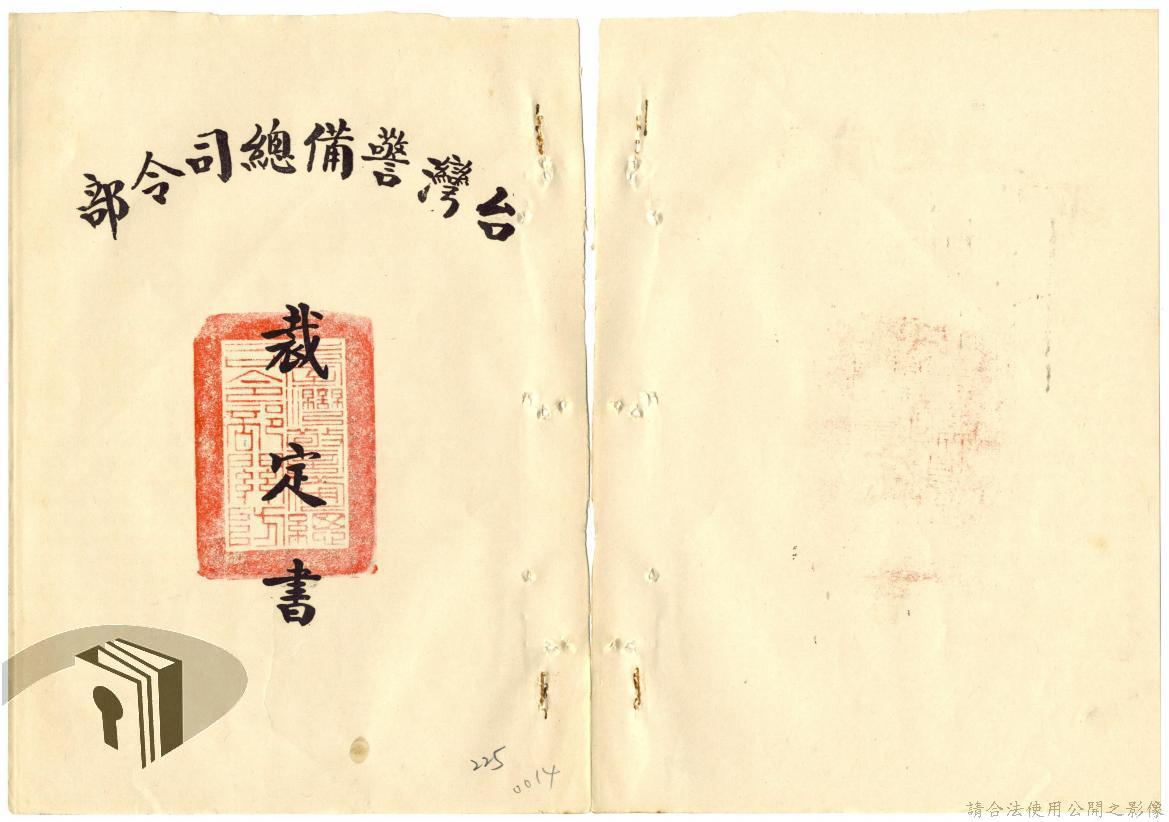 台灣警備總司令部
裁定書
225
0014
請合法使用公開之影像